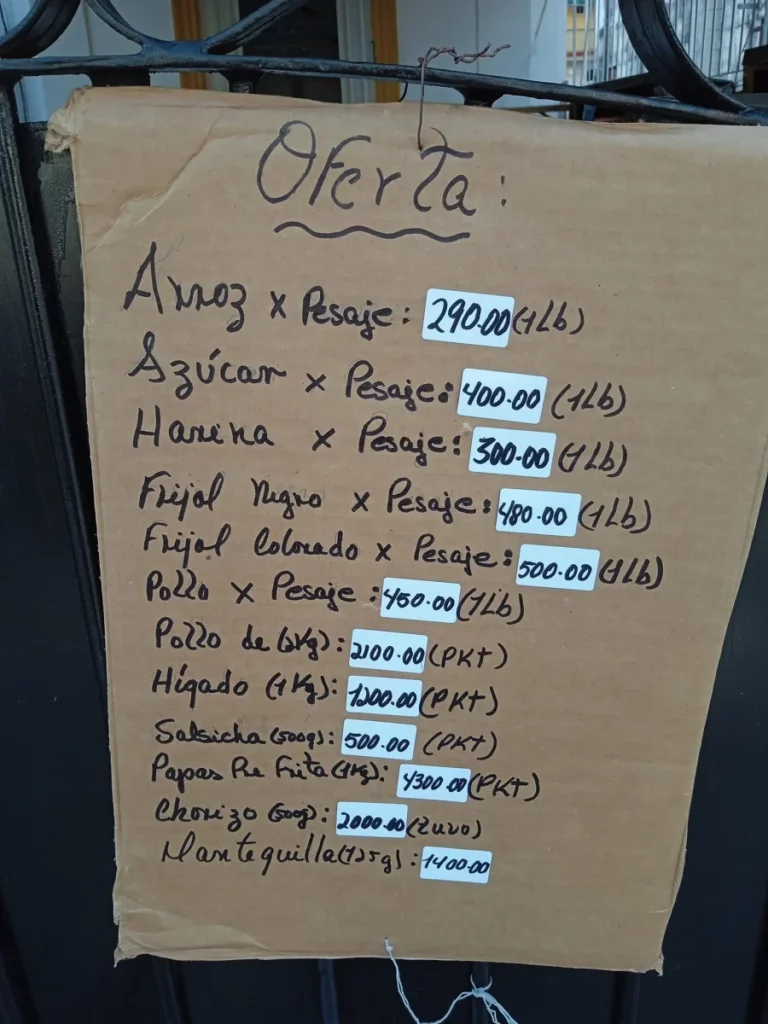 Oferta:
Arroz x Pesaje: 290.00 (1Lb)
Azúcar x Pesaje: 400.00 (1Lb)
Harina x Pesaje: 300.00 (1Lb)
Frijol Negro x Pesaje: 480.00 (1Lb)
Frijol Colorado x Pesaje: 500.00 (1Lb)
Pollo x Pesaje: 450.00 (1Lb)
Pollo de (2Kg): 2100.00 (PKT)
Hígado (1Kg): 1200.00 (PKT)
Salsicha (500g): 500.00 (PKT)
Papas Pre Frita (1Kg): 4300.00 (PKT)
Chorizo (500g): 2000.00
Mantequilla (125g): 1400.00